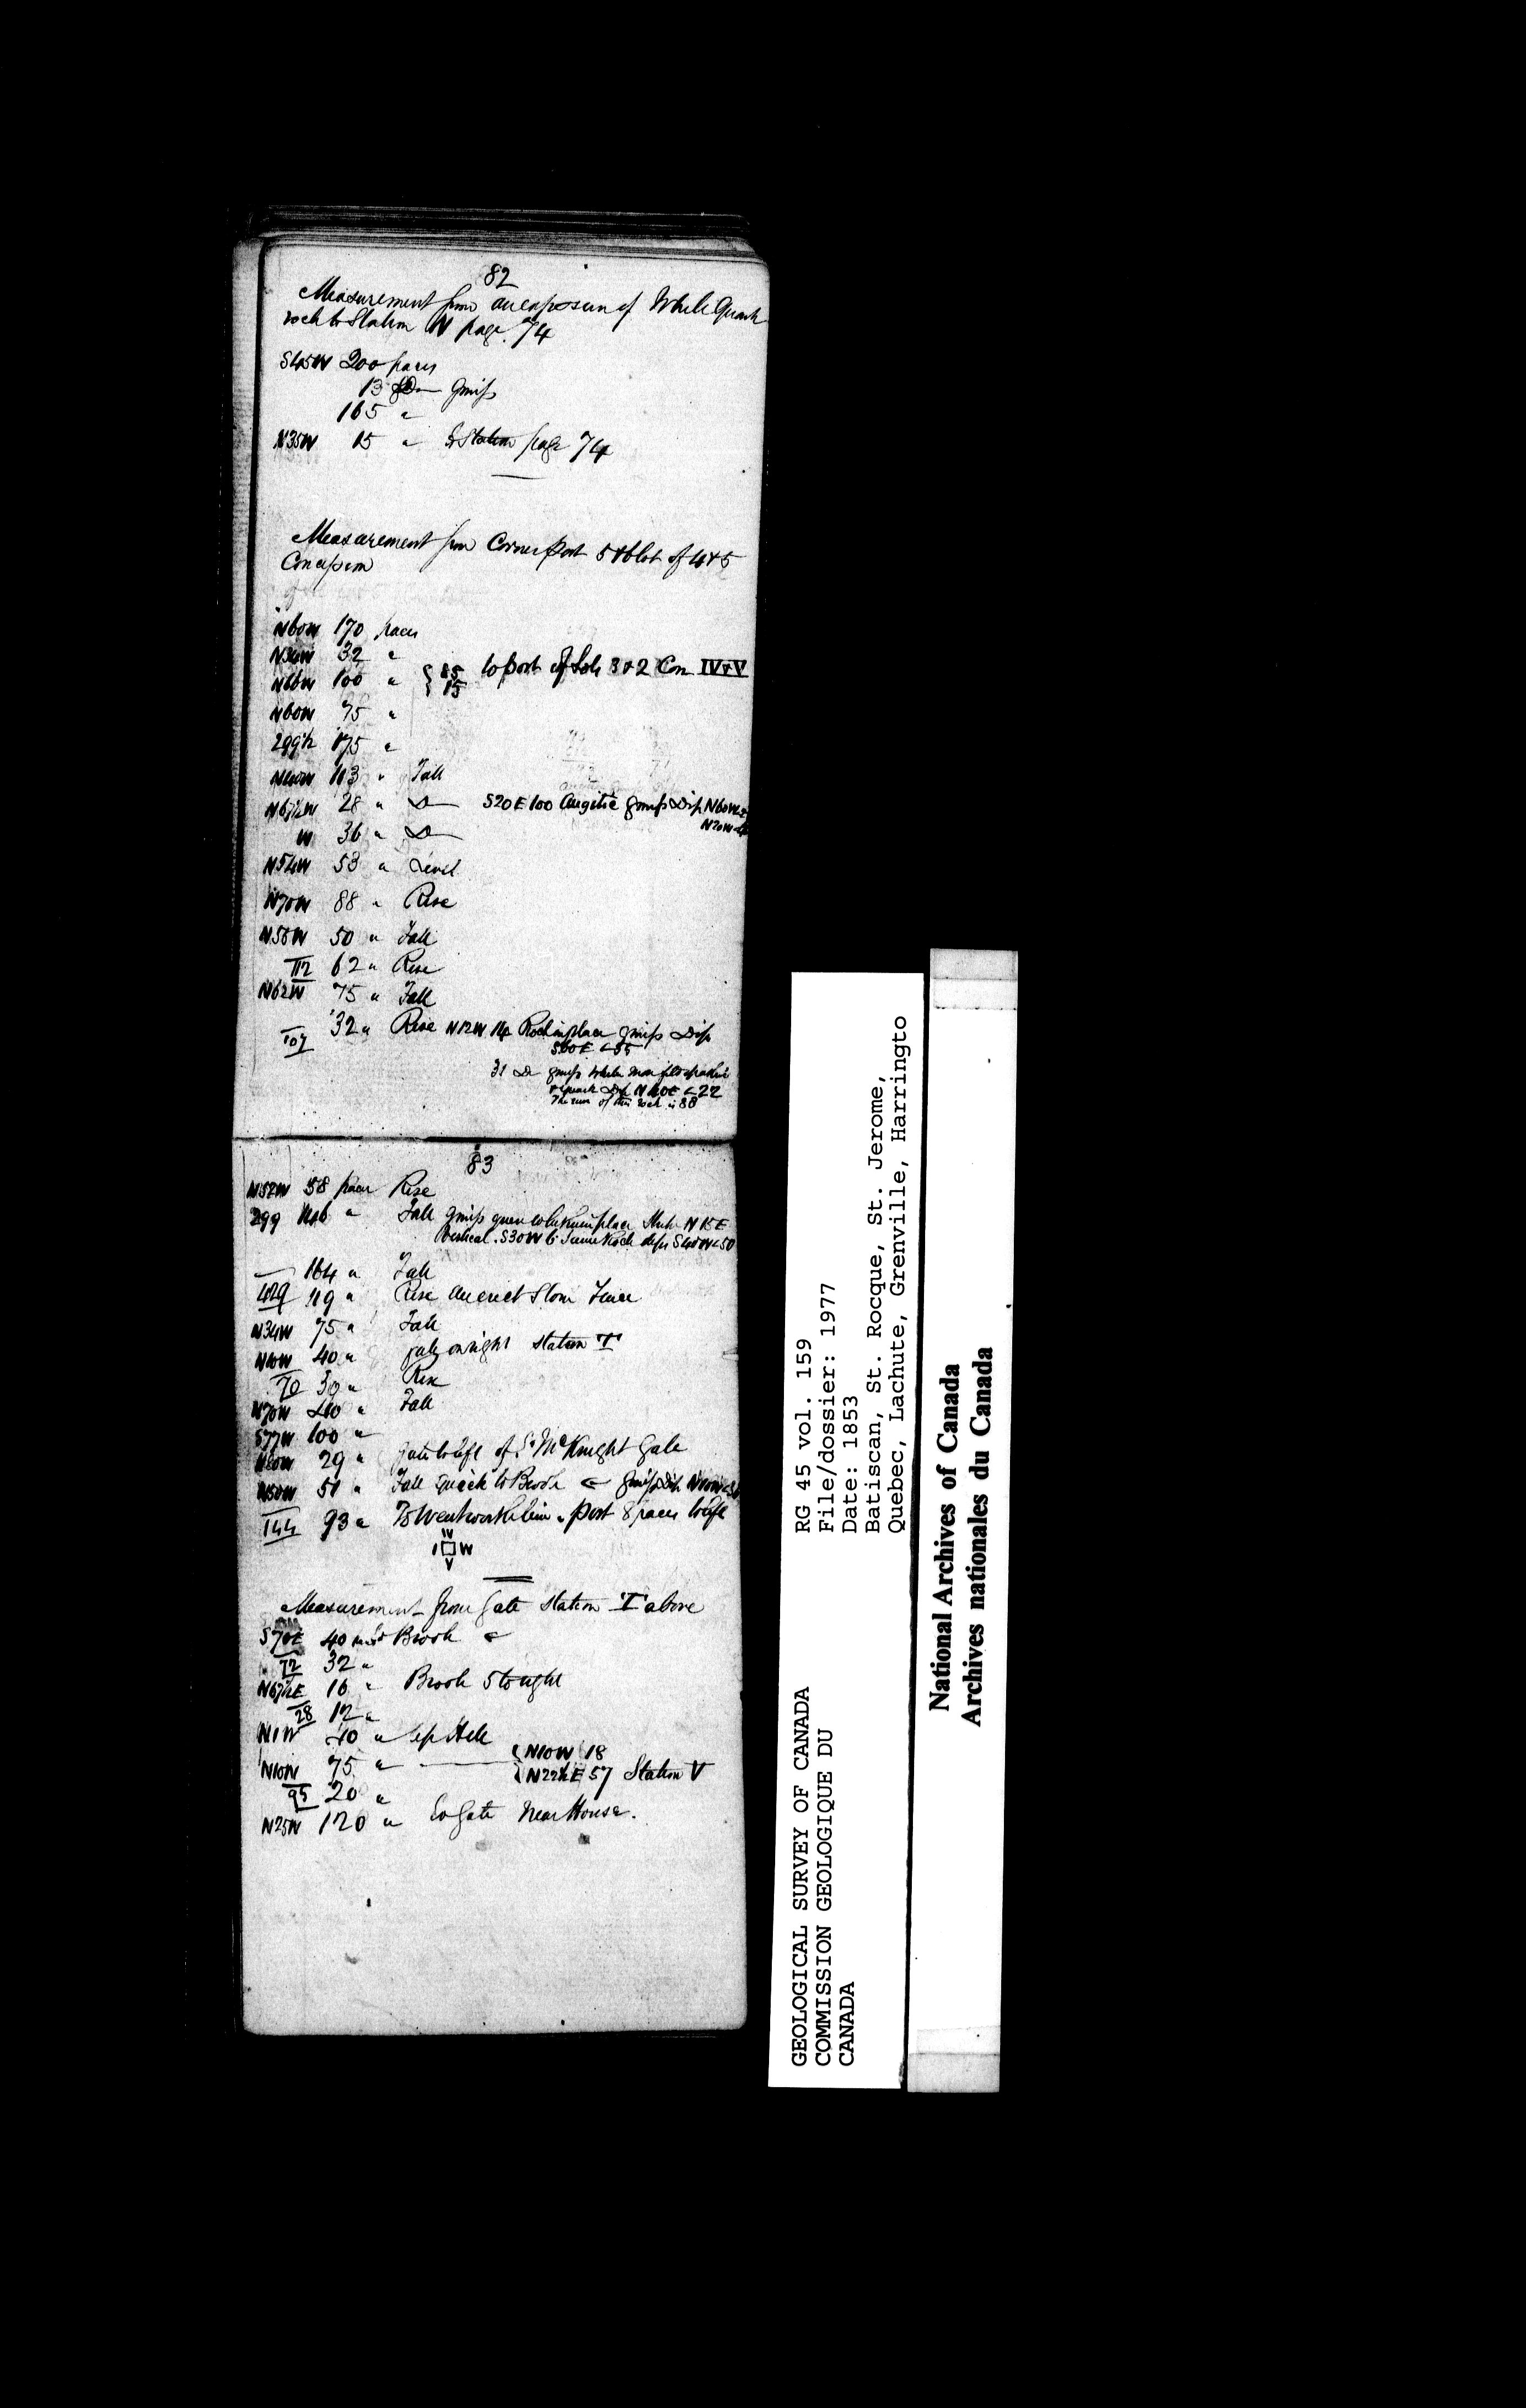 82
Measurement from an exposure of White Quartz
rock to Station N page. 74
S45W 200 paces
13 Do Gneiss
165 "
N35W 15 " to Station page 74
Measurement from Corner Post 5 & 6 lot of 4 & 5
Concession
N60W 170 paces
N34W 32 "
N66W 100 " { 85 to post of Lots 3 & 2 Con IV & V
15
N60W 75 "
299½ 175 "
N40W 113 " Fall
N67½W 28 " Do S20E 100 Augitic gneiss Dip N60W
N20W
W 36 " Do
N54W 53 " Level
N70W 88 " Rise
N58W 50 " Fall
112 62 " Rise
N62W 75 " Fall
107 32 " Rise N12W 14 Rock in place gneiss Dip
S60E < 35
31 Do gneiss White
& quartz Dip N40E < 22
The run of this rock is 88
83
N52W 58 paces Rise
299 146 " Fall gneiss in place Strike N15E
Vertical. S30W 6 Same Rock dips S40W < 50
164 " Fall
429 119 " Rise Stone Fence
N34W 75 " Fall
N40W 40 " gate on right Station T
70 30 " Rise
N70W 40 " Fall
S77W 100 "
N80W 29 " gate to left of McKnight Gate
N50W 51 " Fall quick to Brook < gneiss Dip N10W
144 93 " To Wentworth line " Post 8 paces to left
W
1 □ W
V
Measurement from Gate Station T above
S70E 40 Brook <
72 32 "
N67½E 16 " Brook 5 to right
28 12 "
N1W 40 "
N10W 75 " { N10W 18
N22½E 57 Station V
95 20 "
N25W 120 " to Gate Near House.
GEOLOGICAL SURVEY OF CANADA
COMMISSION GEOLOGIQUE DU
CANADA
RG 45 vol. 159
File/dossier: 1977
Date: 1853
Batiscan, St. Rocque, St. Jerome,
Quebec, Lachute, Grenville, Harringto
National Archives of Canada
Archives nationales du Canada